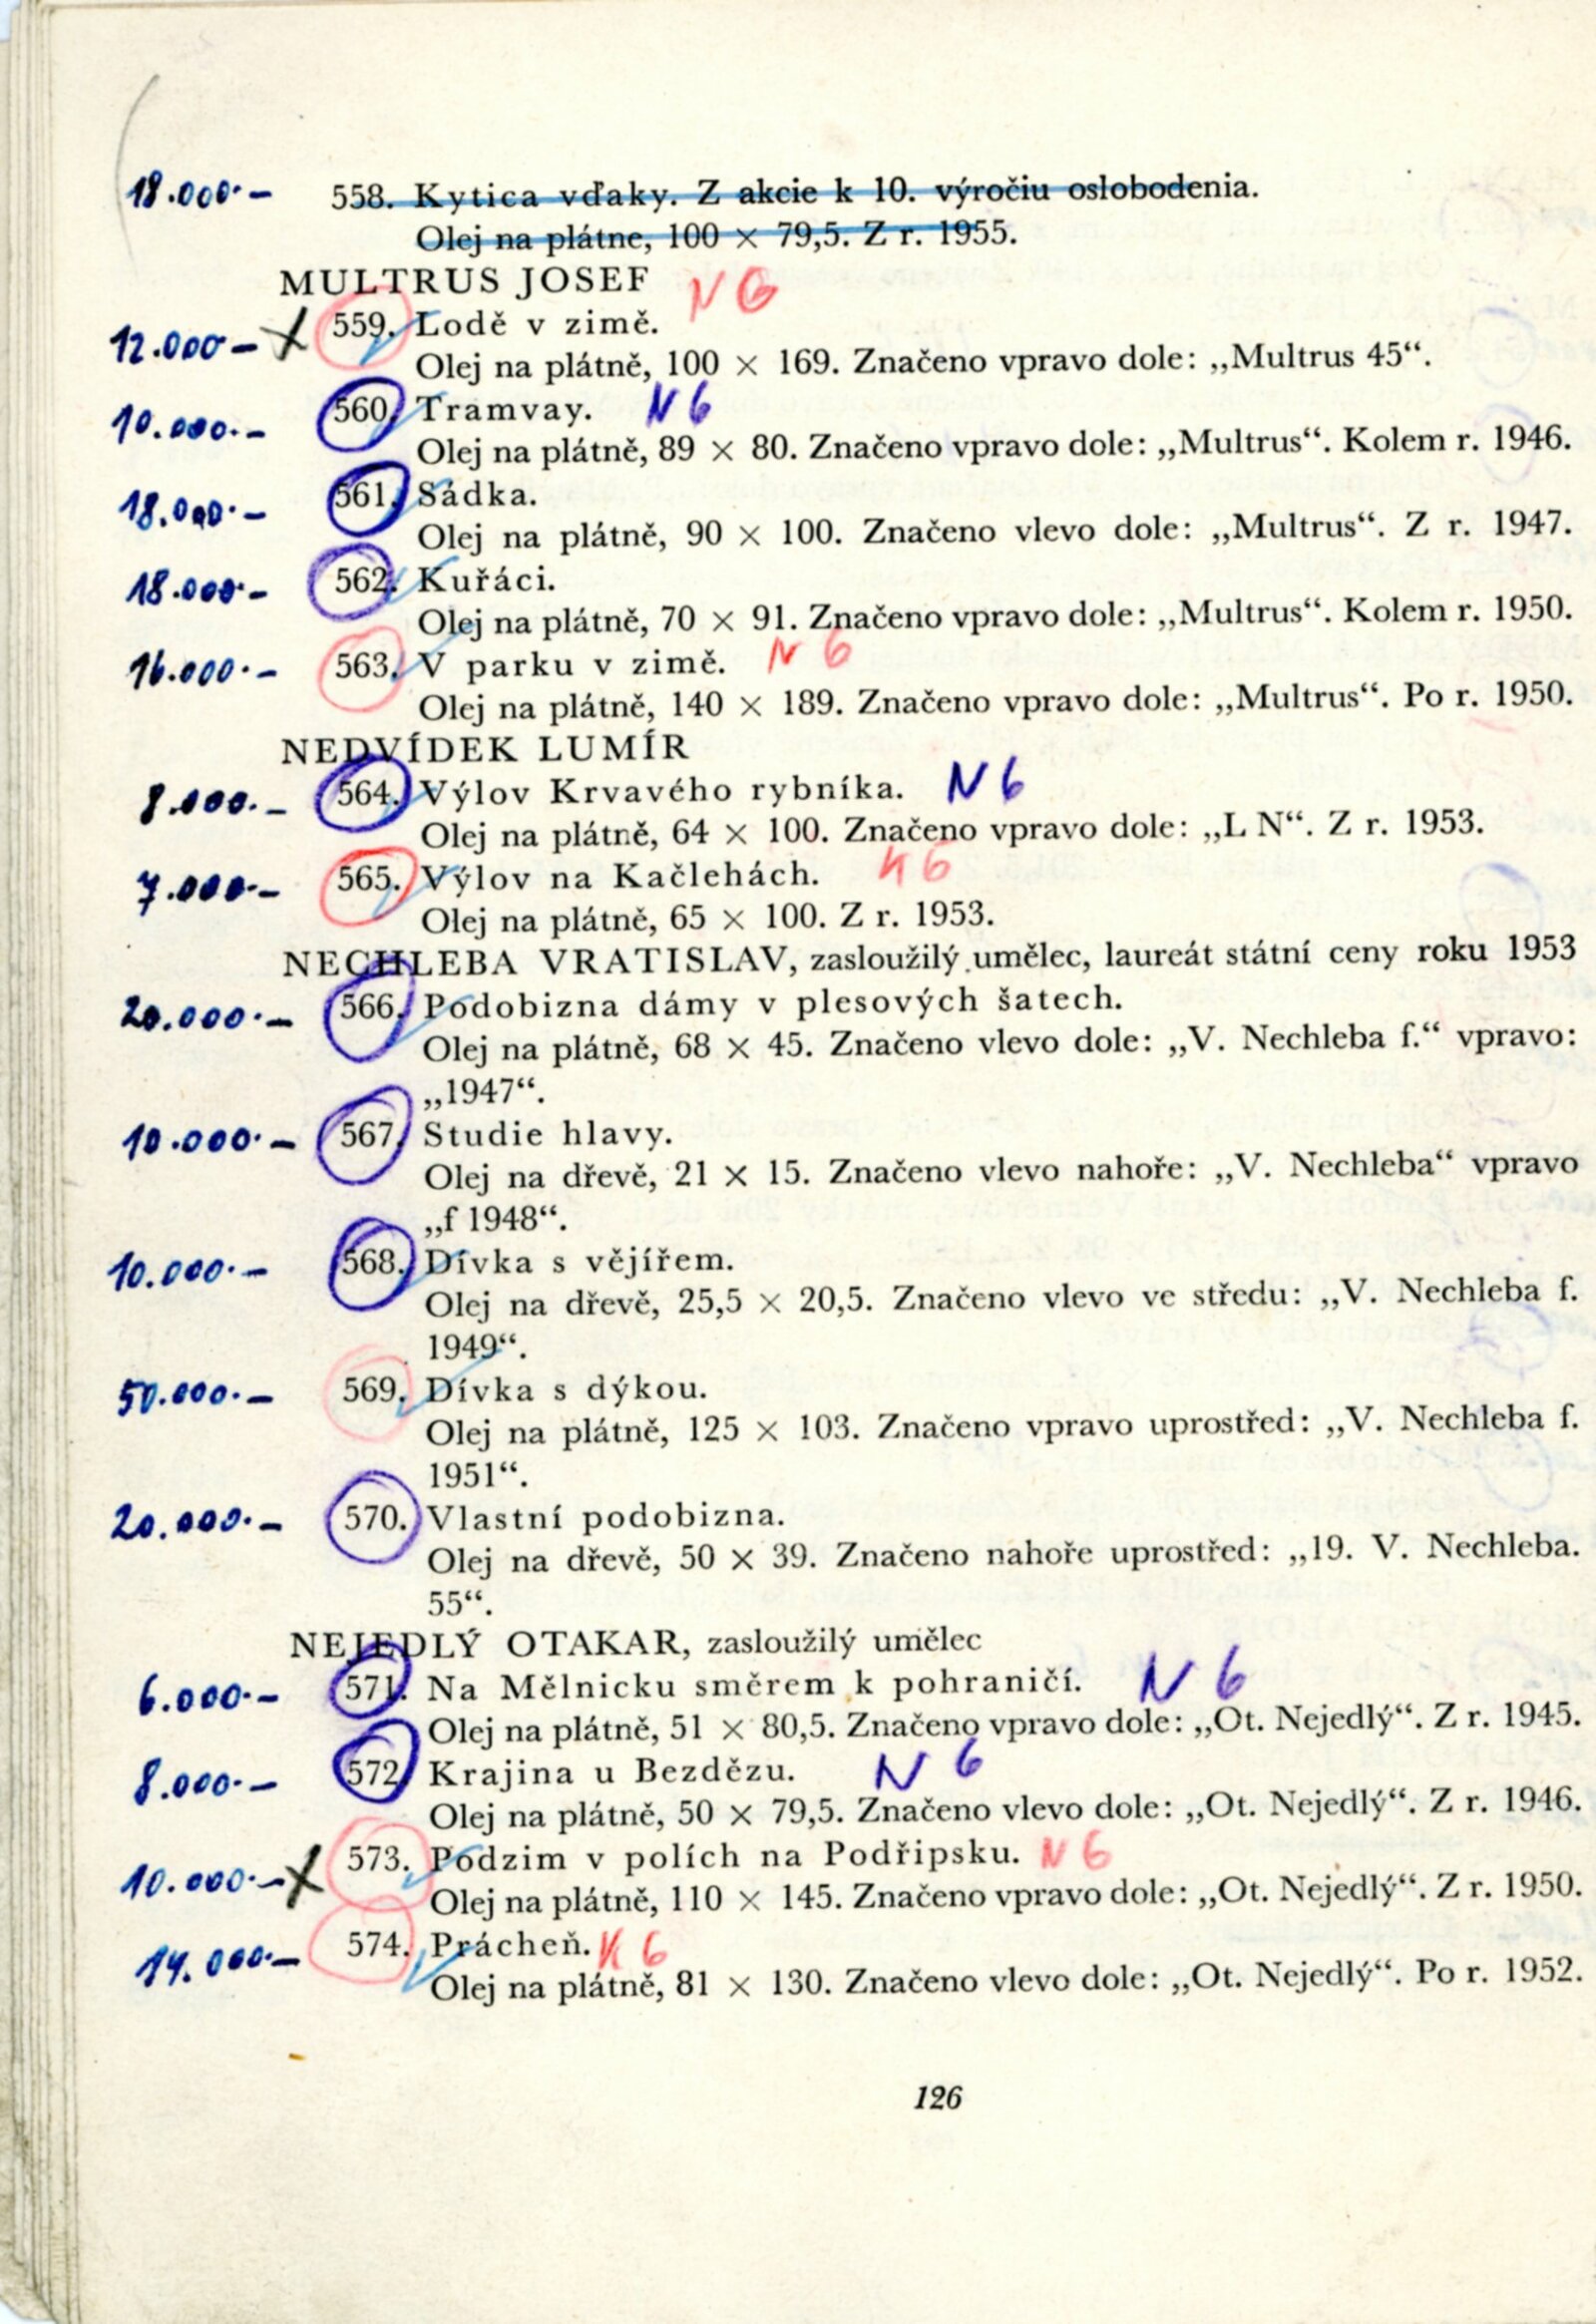 18.000.- 558. Kytica vďaky. Z akcie k 10. výročiu oslobodenia.
Olej na plátne, 100 × 79,5. Z r. 1955.
MULTRUS JOSEF N6
12.000- X 559. Lodě v zimě.
Olej na plátně, 100 × 169. Značeno vpravo dole: „Multrus 45“.
10.000.- 560. Tramvay. N6
Olej na plátně, 89 × 80. Značeno vpravo dole: „Multrus“. Kolem r. 1946.
18.000.- 561. Sádka.
Olej na plátně, 90 × 100. Značeno vlevo dole: „Multrus“. Z r. 1947.
18.000.- 562. Kuřáci.
Olej na plátně, 70 × 91. Značeno vpravo dole: „Multrus“. Kolem r. 1950.
16.000.- 563. V parku v zimě. N6
Olej na plátně, 140 × 189. Značeno vpravo dole: „Multrus“. Po r. 1950.
NEDVÍDEK LUMÍR
8.000.- 564. Výlov Krvavého rybníka. N6
Olej na plátně, 64 × 100. Značeno vpravo dole: „L N“. Z r. 1953.
7.000.- 565. Výlov na Kačlehách. N6
Olej na plátně, 65 × 100. Z r. 1953.
NECHLEBA VRATISLAV, zasloužilý umělec, laureát státní ceny roku 1953
20.000.- 566. Podobizna dámy v plesových šatech.
Olej na plátně, 68 × 45. Značeno vlevo dole: „V. Nechleba f.“ vpravo:
„1947“.
10.000.- 567. Studie hlavy.
Olej na dřevě, 21 × 15. Značeno vlevo nahoře: „V. Nechleba“ vpravo
„f 1948“.
10.000.- 568. Dívka s vějířem.
Olej na dřevě, 25,5 × 20,5. Značeno vlevo ve středu: „V. Nechleba f.
1949“.
50.000.- 569. Dívka s dýkou.
Olej na plátně, 125 × 103. Značeno vpravo uprostřed: „V. Nechleba f.
1951“.
20.000.- 570. Vlastní podobizna.
Olej na dřevě, 50 × 39. Značeno nahoře uprostřed: „19. V. Nechleba.
55“.
NEJEDLÝ OTAKAR, zasloužilý umělec
6.000.- 571. Na Mělnicku směrem k pohraničí. N6
Olej na plátně, 51 × 80,5. Značeno vpravo dole: „Ot. Nejedlý“. Z r. 1945.
8.000.- 572. Krajina u Bezdězu. N6
Olej na plátně, 50 × 79,5. Značeno vlevo dole: „Ot. Nejedlý“. Z r. 1946.
10.000.- X 573. Podzim v polích na Podřipsku. N6
Olej na plátně, 110 × 145. Značeno vpravo dole: „Ot. Nejedlý“. Z r. 1950.
14.000.- 574. Prácheň. N6
Olej na plátně, 81 × 130. Značeno vlevo dole: „Ot. Nejedlý“. Po r. 1952.
126